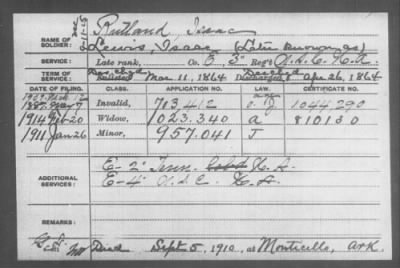 NAME OF SOLDIER:
Rutland, Isaac
Lewis, Isaac (Later known as)
SERVICE:
Late rank, Co. G 3" Reg't U.S.C. H.A.
TERM OF SERVICE:
Enlisted Mar. 11, 1864 Discharged Apr. 26, 1864
DATE OF FILING. CLASS. APPLICATION NO. LAW. CERTIFICATE NO.
1887 Invalid, 713.412 1044290
1914 Feb 20 Widow, 1023.340 a 810130
1911 Jan 26 Minor, 957.041 J
ADDITIONAL SERVICES:
E-2" Tenn. H.A.
E-4" U.S.C. H.A.
REMARKS:
Died Sept 5, 1910, at Monticello, Ark.